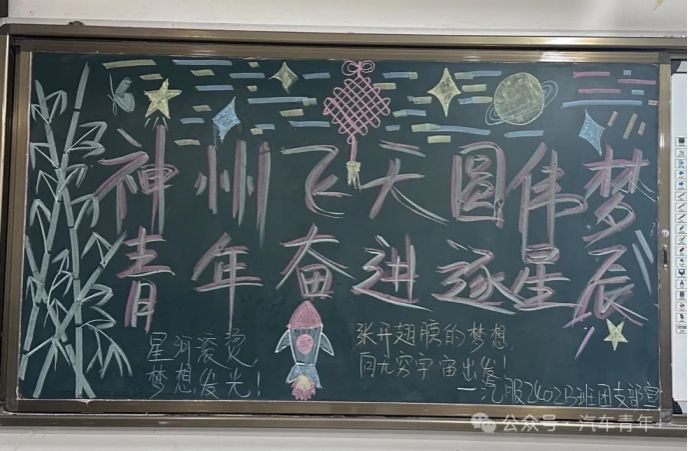 神州飞天圆伟梦
青年奋进逐星辰
星河滚烫,
梦想发光!
张开翅膀的梦想,
向无穷宇宙出发!
—汽服2402B班团支部宣
公众号·汽车青年